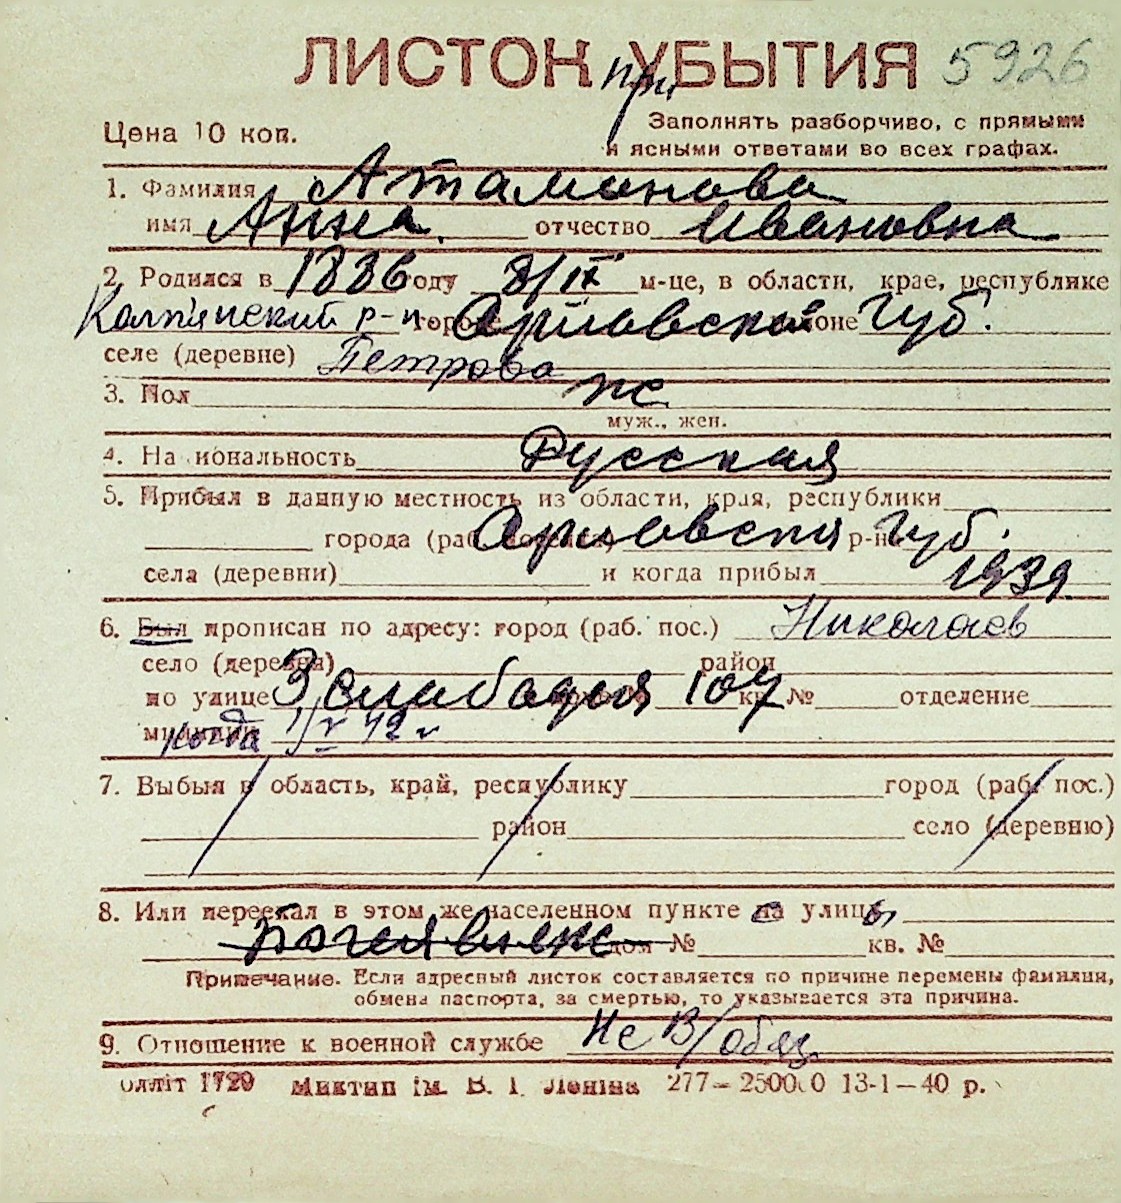 ЛИСТОК УБЫТИЯ 5926
при
Цена 10 коп.
Заполнять разборчиво, с прямыми
и ясными ответами во всех графах.
1. Фамилия Атаманова
имя Анна отчество Ивановна
2. Родился в 1886 году 8/IX м-це, в области, крае, республике
р-н Орловской районе Губ.
селе (деревне) Петрова
3. Пол ж
муж., жен.
4. Национальность Русская
5. Прибыл в данную местность из области, края, республики
города (раб. поселка) Орловская р-на Губ.
села (деревни) и когда прибыл 1939
6. Был прописан по адресу: город (раб. пос.) Николаев
село (деревня) район
по улице 3 слабодская 107 кв. № отделение
милиции когда 1/V 42 г
7. Выбыл в область, край, республику город (раб. пос.)
район село (деревню)
8. Или переехал в этом же населенном пункте с улицы
дом № кв. №
Примечание. Если адресный листок составляется по причине перемены фамилии,
обмена паспорта, за смертью, то указывается эта причина.
9. Отношение к военной службе Не в/обяз
Облліт 1720 Миктип ім. В. І. Леніна 277—250000 13-1—40 р.